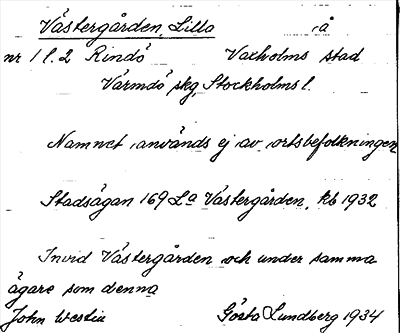 Västergården, Lilla å
nr 1 l. 2 Rindö Vaxholms stad
Värmdö skg, Stockholms l.
Namnet används ej av ortsbefolkningen
Stadsägan 169 La Västergården, kb 1932
Invid Västergården och under samma
ägare som denna
John Westin Gösta Lundberg 1934